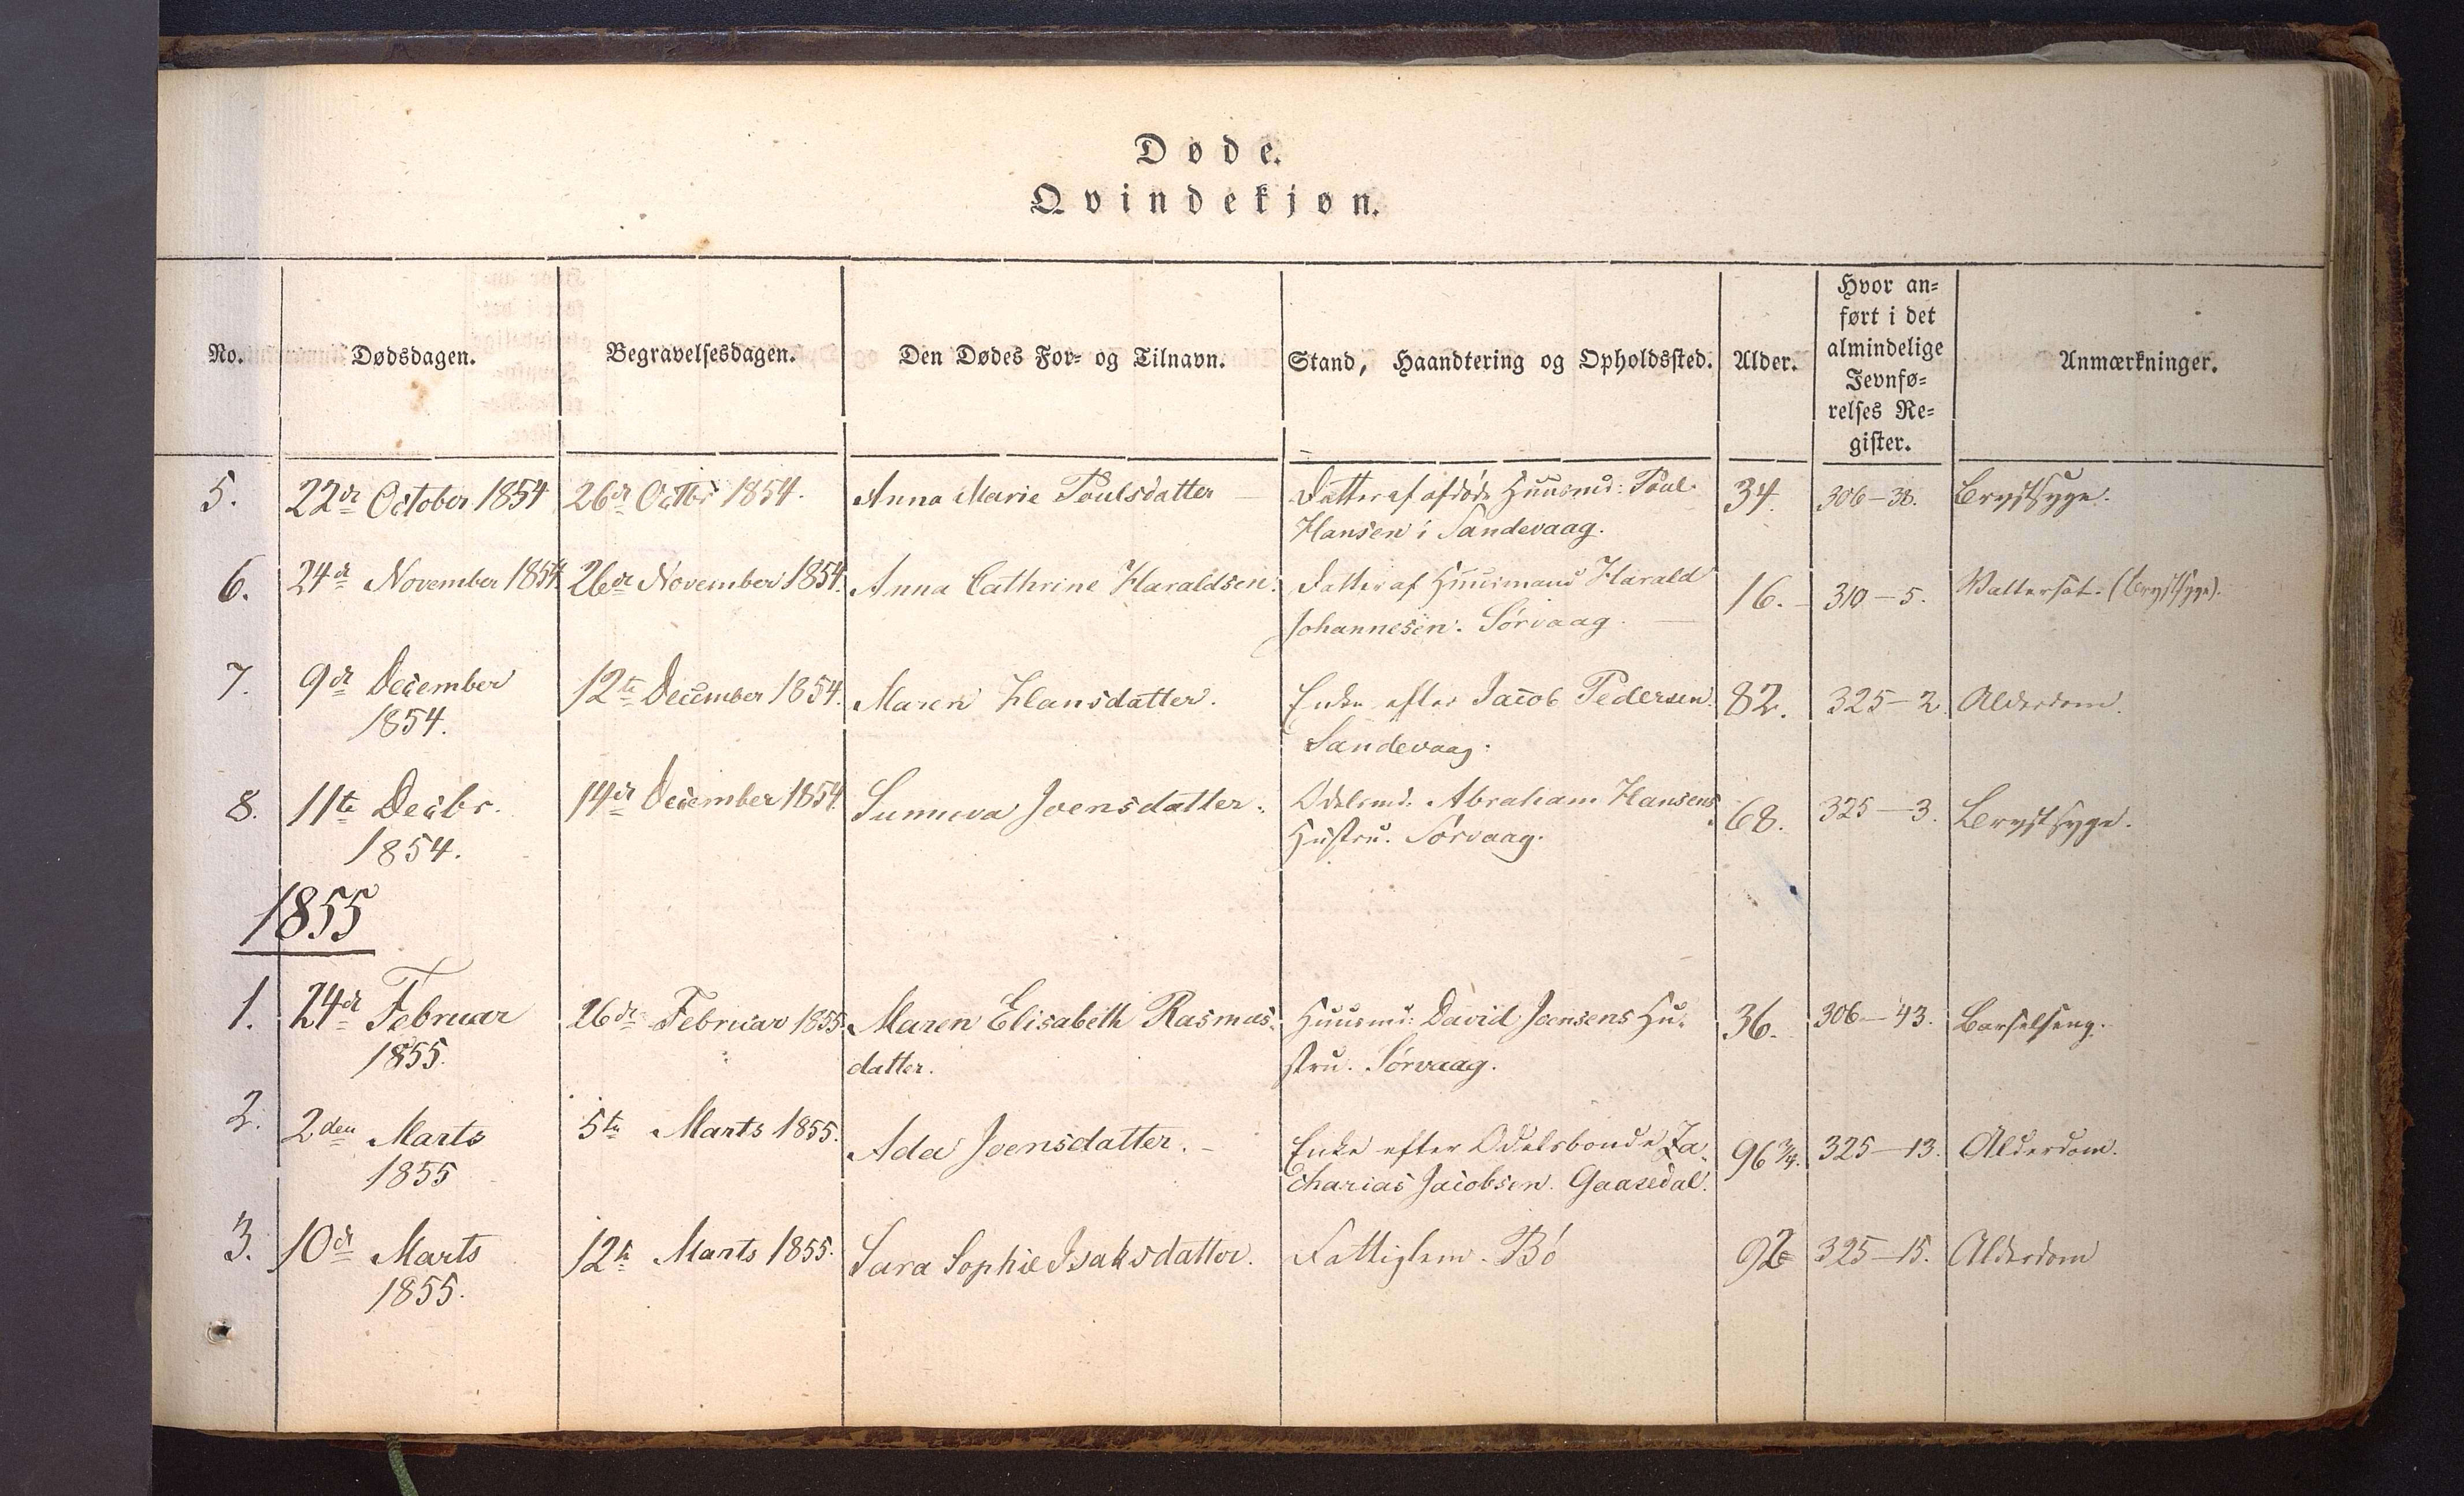 Døde.
Qvindekjøn.
No. Dødsdagen. Begravelsesdagen. Den Dødes For- og Tilnavn. Stand, Haandtering og Opholdssted. Alder. Hvor an-
ført i det
almindelige
Jevnfø-
relses Re-
gister. Anmærkninger.
5. 22de October 1854 26de Octbr 1854. Anna Marie Poulsdatter — Datter af afdøde Huusmd: Poul 34. 306–38. Brystsyge.
Hansen i Sandevaag.
6. 24de November 1854. 26de November 1854. Anna Cathrine Haraldsen. Datter af Huusmand Harald 16. 310–5. Vattersot. (Brystsyge).
Johannesen. Sørvaag. —
7. 9de December 12te December 1854. Maren Hansdatter. Enke efter Jacob Pedersen. 82. 325–2. Alderdom.
1854. Sandevaag.
8. 11te Decbr. 14de December 1854. Sunneva Joensdatter. Odelsmd. Abraham Hansens 68. 325–3. Brystsyge.
1854. Hustru. Sørvaag.
1855
1. 24de Februar 26de Februar 1855. Maren Elisabeth Rasmus- Huusmd: David Joensens Hu- 36. 306–43. Barselseng.
1855. datter. stru. Sørvaag.
2. 2den Marts 5te Marts 1855. Ada Joensdatter. – Enke efter Odelsbonde Za- 96 3/4. 325–13. Alderdom.
1855 charias Jacobsen. Gaasedal.
3. 10de Marts 12te Marts 1855. Sara Sophie Isaksdatter. Fattiglem. Bø 92 325–15. Alderdom
1855.